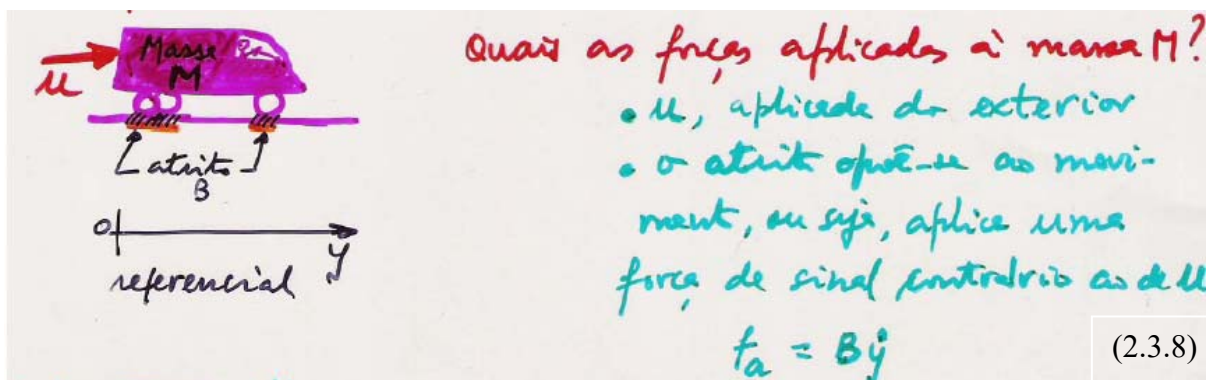 Masse
M
u
atrito
B
0
y
referencial
Quais as forças aplicadas à massa M?
• u, aplicada do exterior
• o atrito opõe-se ao movi-
mento, ou seja, aplica uma
força de sinal contrário ao de u
fa = Bẏ
(2.3.8)